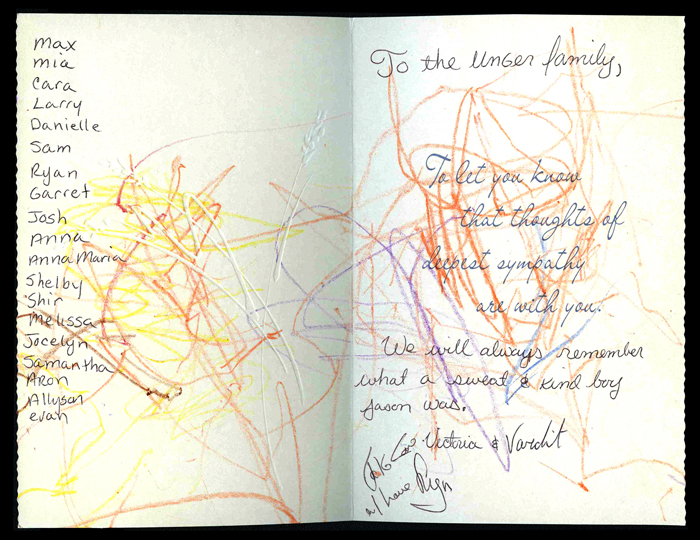 Max
mia
Cara
Larry
Danielle
Sam
Ryan
Garret
Josh
Anna
AnnaMaria
Shelby
Shir
Melissa
Jocelyn
Samantha
Aron
Allyson
evan
To the Unger family,
To let you know
that thoughts of
deepest sympathy
are with you.
We will always remember
what a sweat & kind boy
Jason was.
Victoria & Vardit